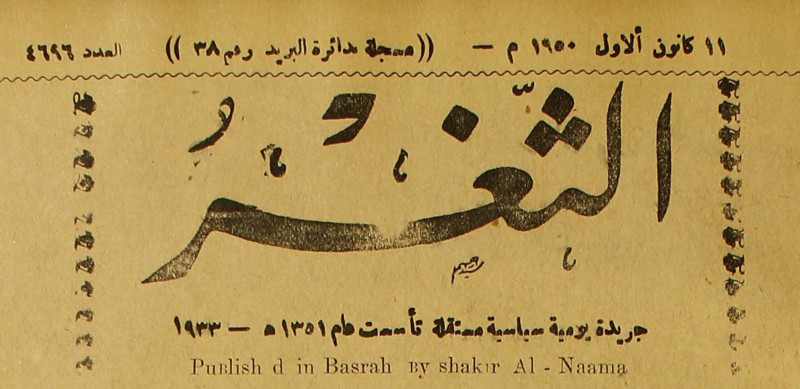 ١١ كانون ألاول ١٩٥٠ م – ((مسجلة بدائرة البريد رقم ٣٨)) العدد ٤٦٩٦
الثّغر
جريدة يومية سياسية مستقلة تأسست عام ١٣٥١ ه – ١٩٣٣
Publish d in Basrah By shakir Al - Naama